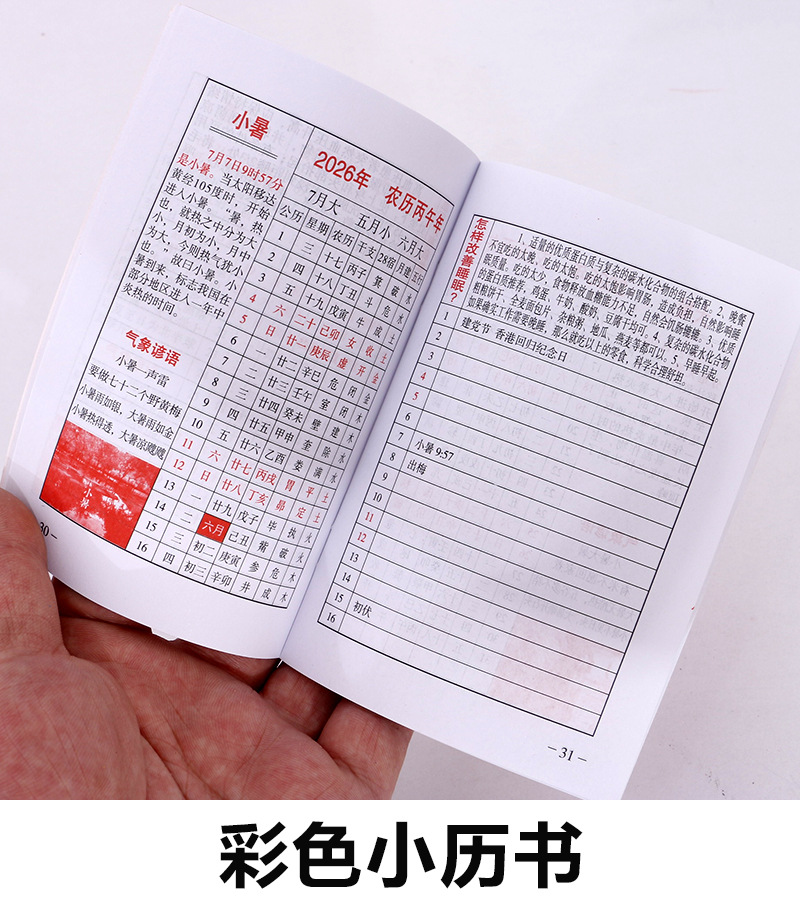 小暑
7月7日9时57分
是小暑。当太阳移达
黄经105度时，开始
进入小暑。"暑，热
也，就热之中分为大
小，月初为小，月中
为大，今则热气犹小
也"，故曰小暑。小
暑到来，标志我国在
部分地区进入一年中
炎热的时间。
气象谚语
小暑一声雷
要做七十二个野黄梅
小暑雨如银，大暑雨如金
小暑热得透，大暑凉飕飕
小暑
2026年 农历丙午年
7月大 五月小 六月大
公历 星期 农历 干支 28宿 月建 五行
1 三 十七 丙子 箕 破 水
2 四 十八 丁丑 斗 危 水
3 五 十九 戊寅 牛 成 土
4 六 二十 己卯 女 收 土
5 日 廿一 庚辰 虚 开 金
6 一 廿二 辛巳 危 闭 金
7 二 廿三 壬午 室 闭 木
8 三 廿四 癸未 壁 建 木
9 四 廿五 甲申 奎 除 水
10 五 廿六 乙酉 娄 满 水
11 六 廿七 丙戌 胃 平 土
12 日 廿八 丁亥 昴 定 土
13 一 廿九 戊子 毕 执 火
14 二 六月 己丑 觜 破 火
15 三 初二 庚寅 参 危 木
16 四 初三 辛卯 井 成 木
30－
怎样改善睡眠？
1、适量的优质蛋白质与复杂的碳水化合物的组合搭配。2、晚餐
不宜吃的太晚、吃的太饱。吃的太饱影响胃肠，造成负担，自然影响睡
眠质量。吃的太少，食物释放血糖能力不足，自然会饥肠辘辘。3、优质
的蛋白质推荐，鸡蛋、牛奶、酸奶、豆腐干均可。4、复杂的碳水化合物
粗粮饼干、全麦面包片、杂粮粥、地瓜、燕麦等都可以。5、早睡早起。
如果确实工作需要晚睡，那么就吃以上的零食，科学合理舒坦。
1 建党节 香港回归纪念日
2
3
4
5
6
7 小暑 9:57
8 出梅
9
10
11
12
13
14
15 初伏
16
－31－
彩色小历书